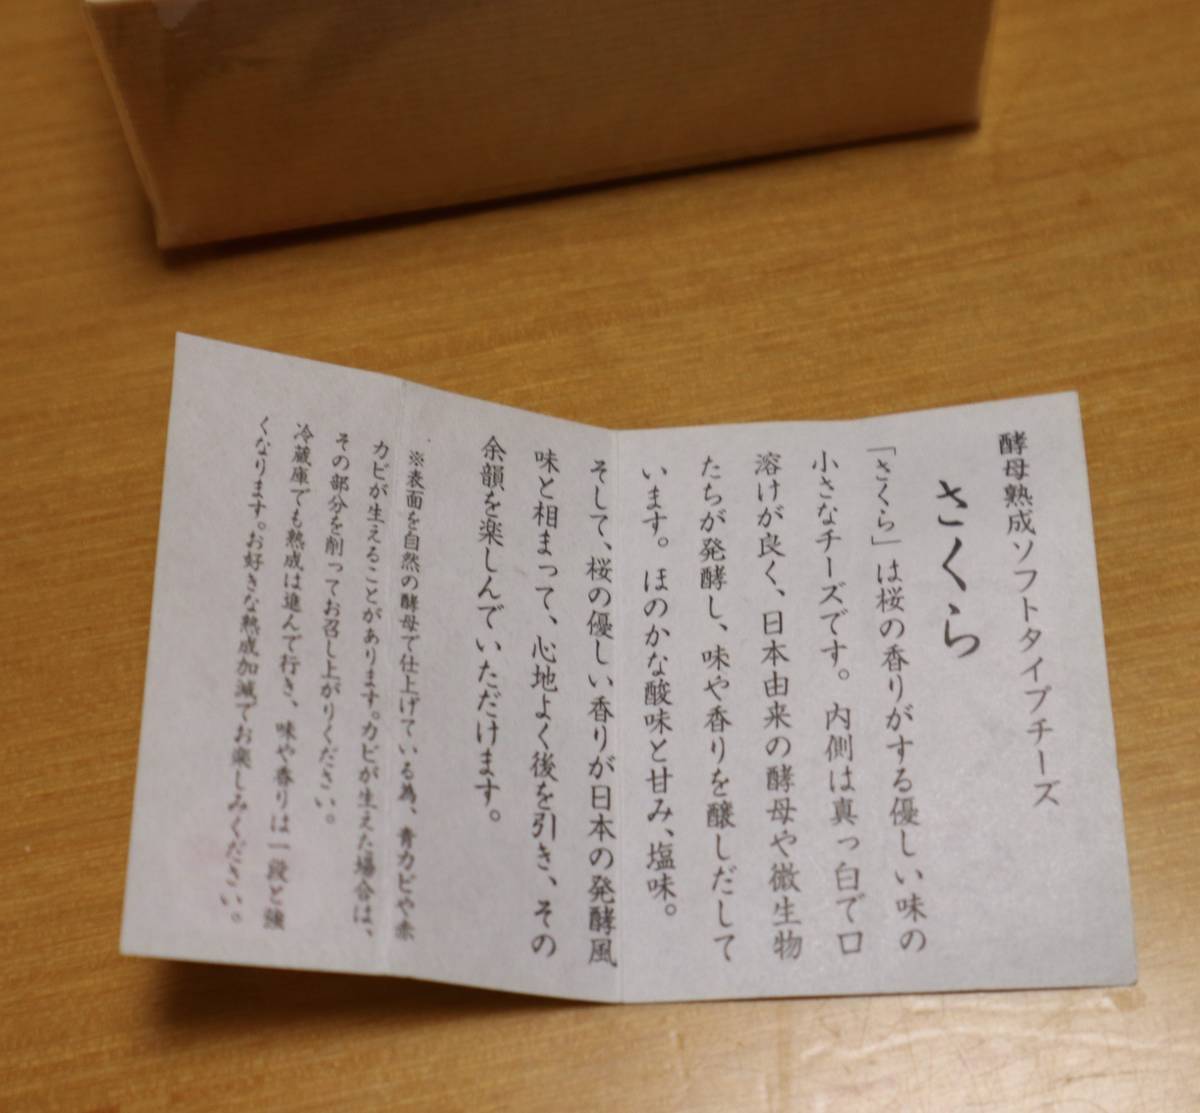 酵母熟成ソフトタイプチーズ
さくら
「さくら」は桜の香りがする優しい味の
小さなチーズです。内側は真っ白で口
溶けが良く、日本由来の酵母や微生物
たちが発酵し、味や香りを醸しだして
います。ほのかな酸味と甘み、塩味。
そして、桜の優しい香りが日本の発酵風
味と相まって、心地よく後を引き、その
余韻を楽しんでいただけます。
※表面を自然の酵母で仕上げている為、青カビや赤
カビが生えることがあります。カビが生えた場合は、
その部分を削ってお召し上がりください。
冷蔵庫でも熟成は進んで行き、味や香りは一段と強
くなります。お好きな熟成加減でお楽しみください。